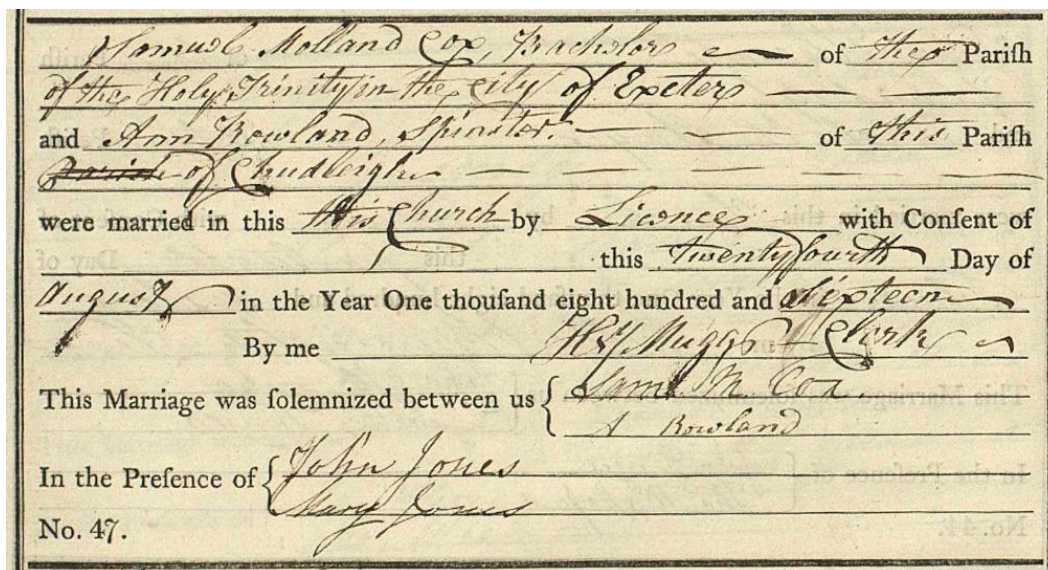 Samuel Molland Cox, Bachelor of the Pariſh
of the Holy Trinity in the City of Exeter
and Ann Rowland, Spinster. of this Pariſh
Parish of Chudleigh
were married in this this Church by Licence with Conſent of
this Twenty fourth Day of
August in the Year One thouſand eight hundred and Sixteen
By me Hy Clerk
This Marriage was ſolemnized between us { Saml M Cox
A Rowland
In the Preſence of { John Jones
Mary Jones
No. 47.